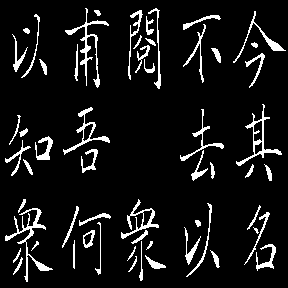 今其名
不去以
閱衆
甫吾何
以知衆